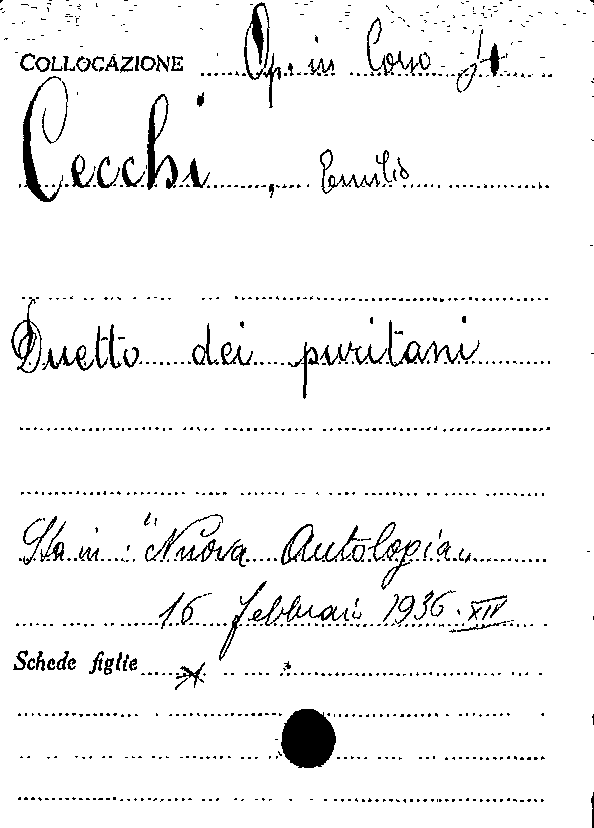 COLLOCAZIONE Op. in Corso
Cecchi, Emilio
Duetto dei puritani
Sta in: "Nuova Antologia"
16 febbraio 1936.XIV
Schede figlie